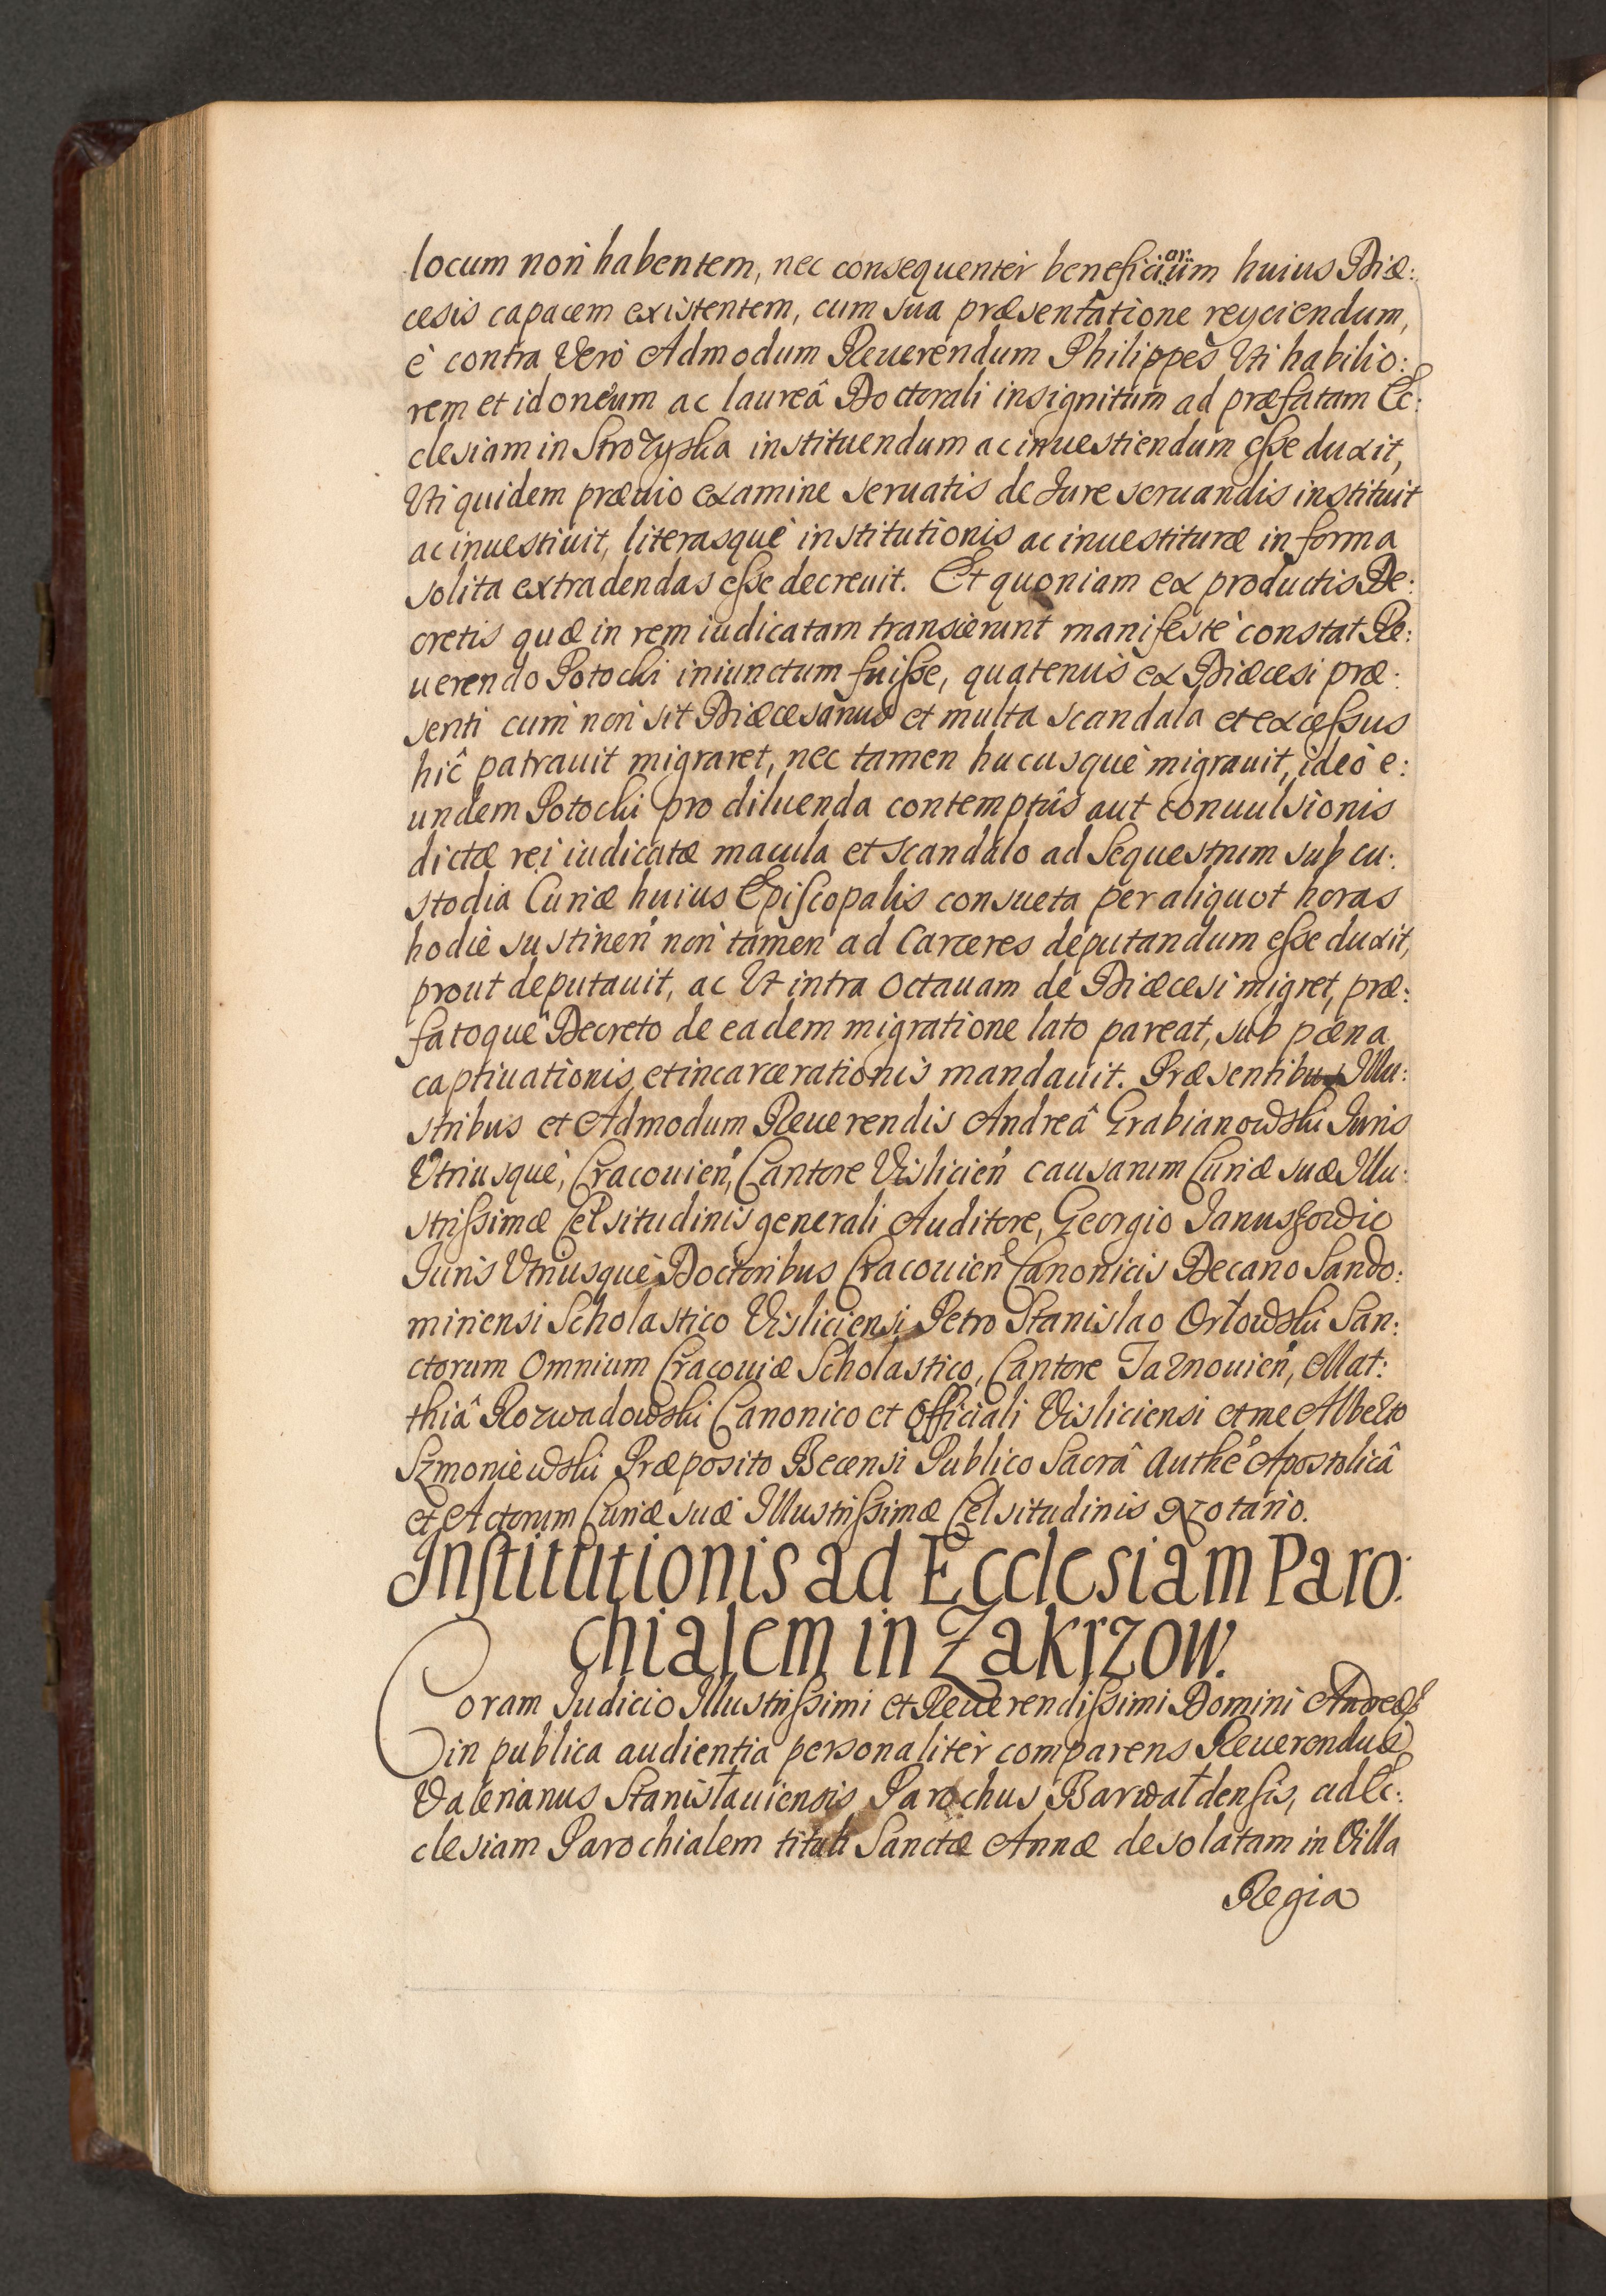 locum non habentem, nec consequenter beneficiorum huius Diæ:
cesis capacem existentem, cum sua præsentatione reyciendum,
è contra Verò Admodum Reuerendum Philippes Vti habilio:
rem et idoneum ac laureâ Doctorali insignitum ad præfatam Ec:
clesiam in Strozyska instituendum ac inuestiendum esse duxit,
Vti quidem præuio examine seruatis de Jure seruandis instituit
ac inuestiuit, literasquè institutionis ac inuestituræ in forma
solita extradendas esse decreuit. Et quoniam ex productis De:
cretis quæ in rem iudicatam transierunt manifestè constat Re:
uerendo Potocki iniunctum fuisse, quatenus ex Diæcesi præ:
senti cum non sit Diæcesanus et multa scandala et excessus
hîc patrauit migraret, nec tamen hucusquè migrauit, ideò e:
undem Potocki pro diluenda contemptûs aut conuulsionis
dictæ rei iudicatæ macula et scandalo ad Sequestrum sub cu:
stodia Curiæ huius Episcopalis consueta per aliquot horas
hodiè sustineri non tamen ad Carceres deputandum esse duxit,
prout deputauit, ac Vt intra Octauam de Diæcesi migret, præ:
fatoquè Decreto de eadem migratione lato pareat, sub pæna
captiuationis et incarcerationis mandauit. Præsentibus Illu:
stribus et Admodum Reuerendis Andreâ Grabianowski Juris
Vtriusquè, Cracouien, Cantore Vislicien causarum Curiæ suæ Illu:
strissimæ Celsitudinis generali Auditore, Georgio Ianuszowic
Juris Vtriusquè Doctoribus Cracouien Canonicis Decano Sando:
miriensi Scholastico Visliciensi Petro Stanislao Orłowski San:
ctorum Omnium Cracouiæ Scholastico, Cantore Tarnouien, Mat:
thiâ Rozwadowski Canonico et Officiali Visliciensi et me Alberto
Szmoniewski Præposito Becensi Publico Sacrâ Authe Apostolicâ
et Actorum Curiæ suæ Illustrissimæ Celsitudinis Notario.
Institutionis ad Ecclesiam Paro:
chialem in Zakrzow.
Coram Judicio Illustrissimi et Reuerendissimi Domini Andreæ
in publica audientia personalitèr comparens Reuerendus
Valerianus Stanisłauiensis Parochus Barwałdensis, ad Ec:
clesiam Parochialem tituli Sanctæ Annæ desolatam in Villa
Regia